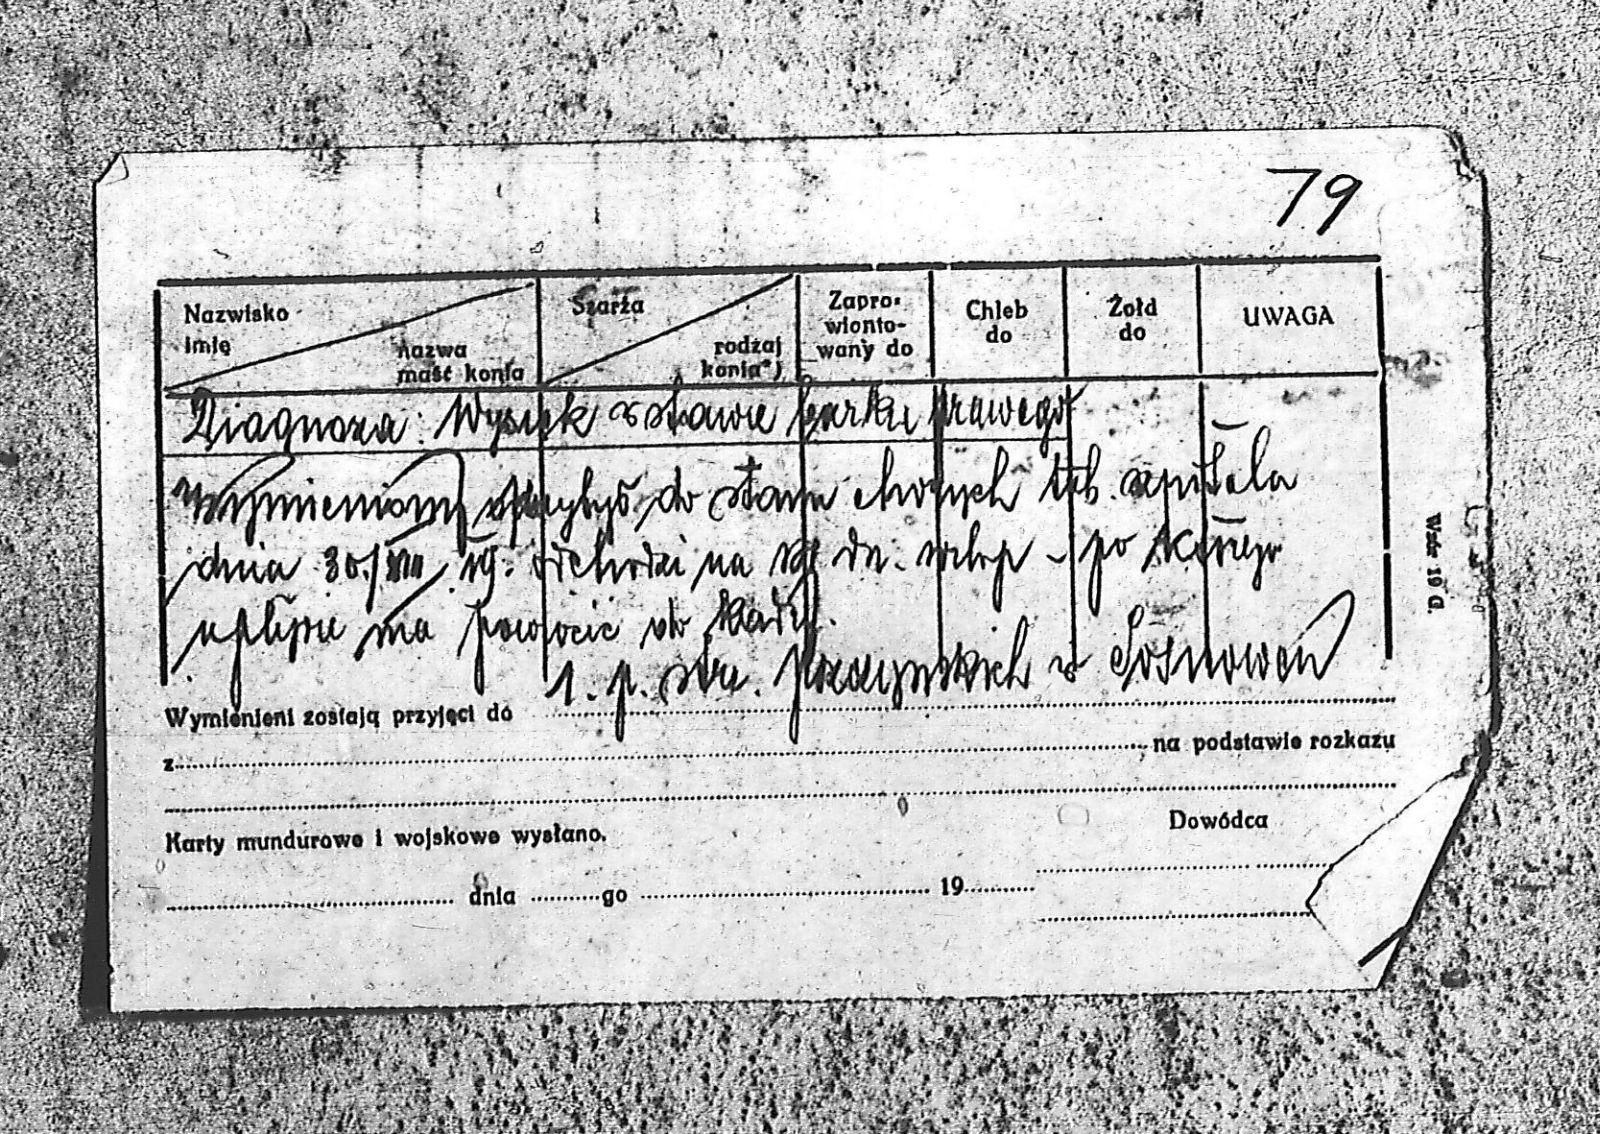 79
Nazwisko
imię
nazwa
maść konia
Szarża
rodzaj
konia*)
Zapro-
wionto-
wany do
Chleb
do
Żołd
do
UWAGA
Diagnoza: Wysięk w stawie barku prawego
Wymieniony przybył do stanu chorych tut. szpitala
dnia 30./VIII odchodzi na dn. urlop - po którego
upływie ma powrócić do kadry.
1. p. str. w Sosnowcu
Wymienieni zostają przyjęci do
z na podstawie rozkazu
Karty mundurowe i wojskowe wysłano.
Dowódca
dnia go 19
Wzór 19 a.